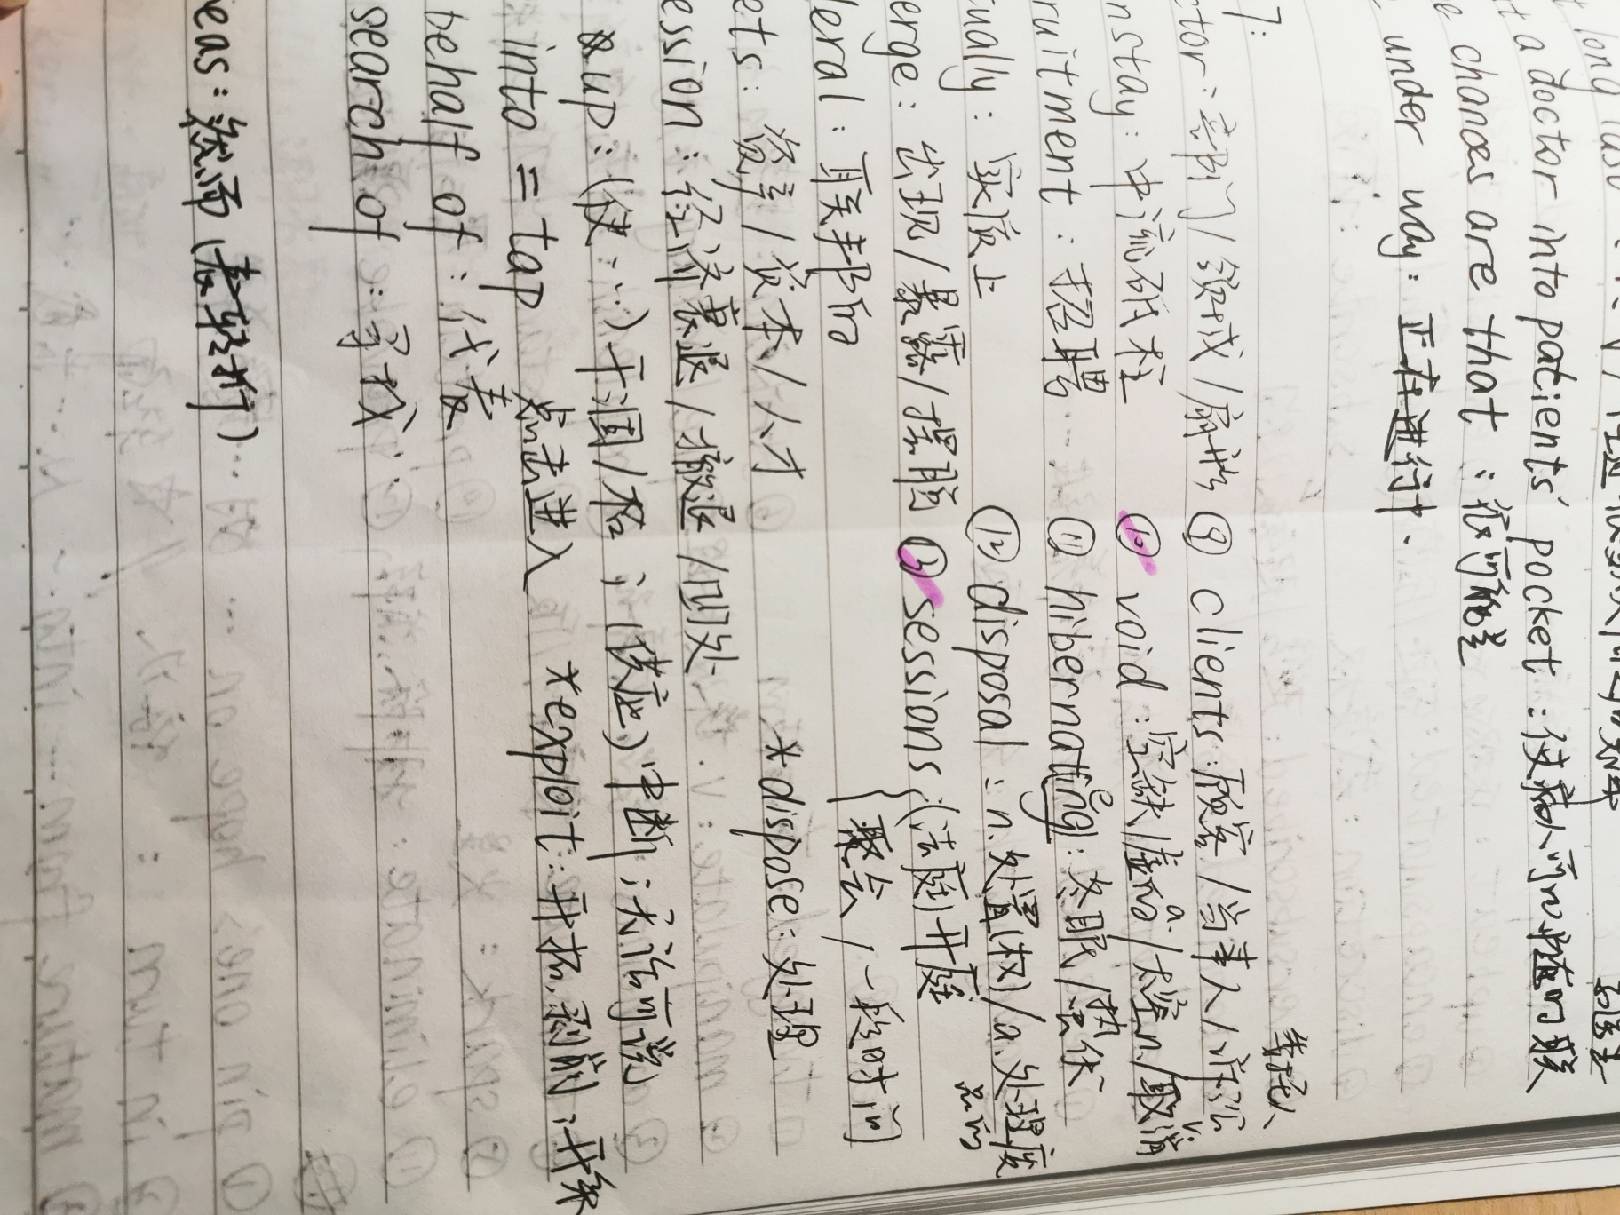 t a doctor into patients' pocket : 使病人
e chances are that : 很可能是
under way : 正在进行.
7:
ctor : 部门 / 组成 / 扇形 ⑨ clients : 顾客 / 当事人 /
委托人
nstay : 中流砥柱 ⑩ void : 空缺 a. / 太空 n. / 取消 v.
ruitment : 招聘 ⑪ hibernating : 冬眠 / 蛰伏
e
ually : 实质上 ⑫ disposal : n. 处置权 / a. 处理废
品的
erge : 出现 / 暴露 / 摆脱 ⑬ sessions : (法庭) 开庭
聚会 / 一段时间
eral : 联邦
ets : 资产 / 资本 / 人才 * dispose : 处理
ession : 经济衰退 / 撤退 / 凹处
up : (使…) 干涸 / 枯 ; (供应) 中断 ; 无话可说
into = tap 点击进入 * exploit : 开拓. 剥削 ; 开采
behalf of : 代表
search of : 寻找
eas : 然而 (表转折)